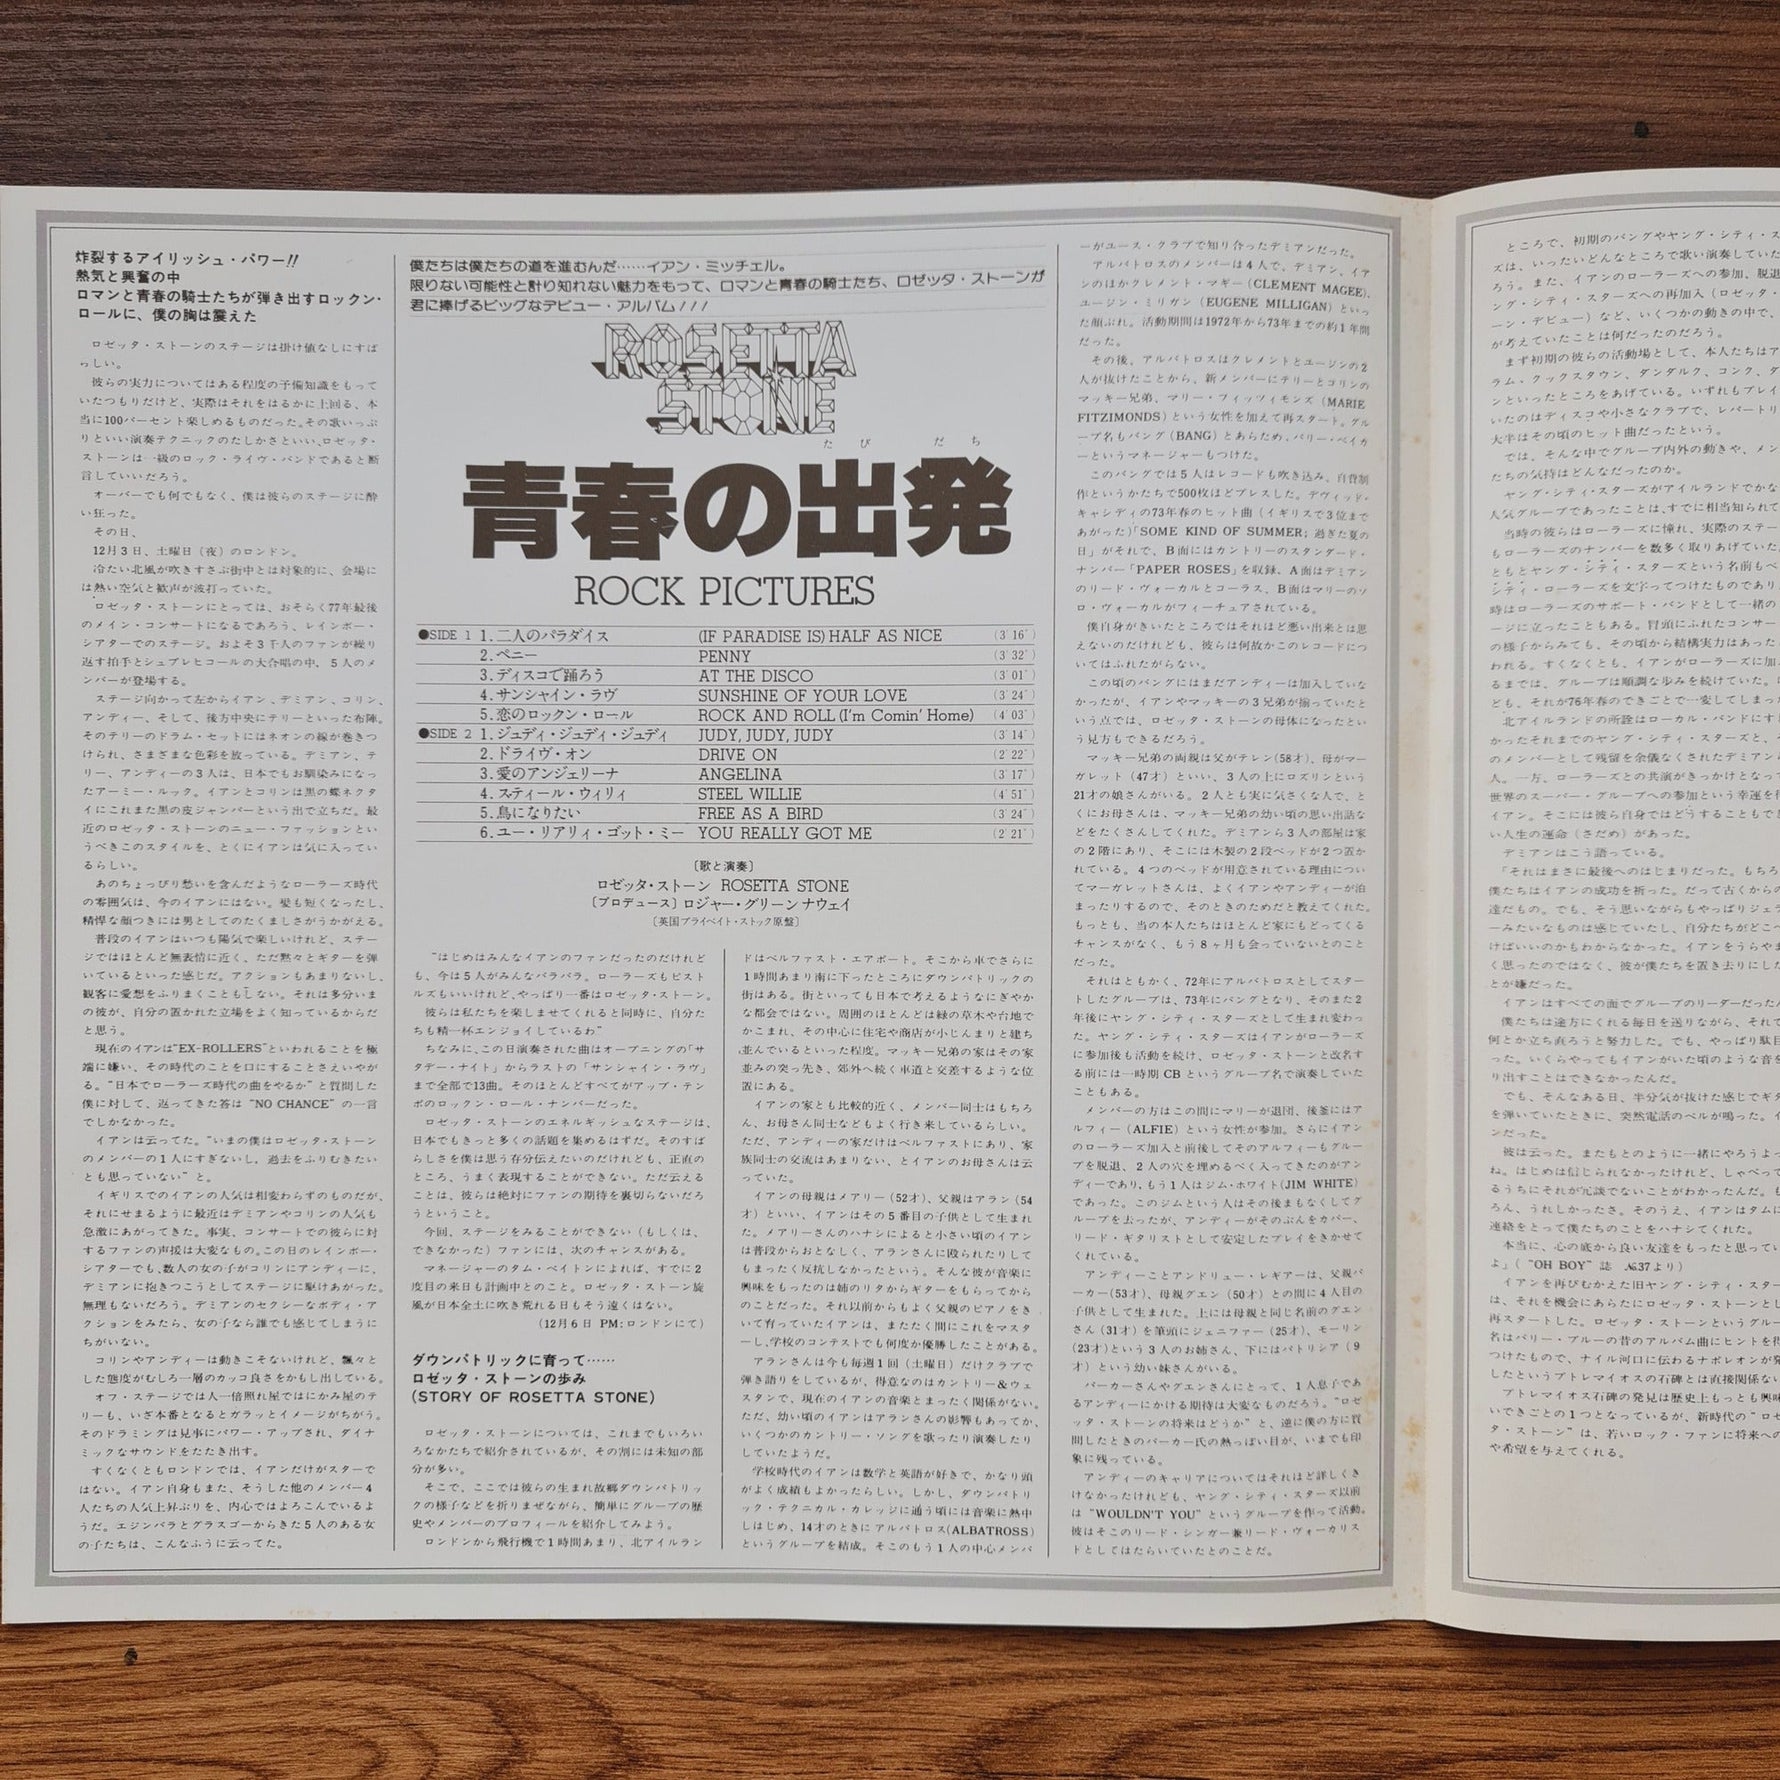 炸裂するアイリッシュ・パワー!!
熱気と興奮の中
ロマンと青春の騎士たちが弾き出すロックン・
ロールに、僕の胸は震えた
ロゼッタ・ストーンのステージは掛け値なしにすば
らしい。
彼らの実力についてはある程度の予備知識をもって
いたつもりだけど、実際はそれをはるかに上回る、本
当に100パーセント楽しめるものだった。その歌いっぷ
りといい演奏テクニックのたしかさといい、ロゼッタ・
ストーンは一級のロック・ライヴ・バンドであると断
言していいだろう。
オーバーでも何でもなく、僕は彼らのステージに酔
い狂った。
その日、
12月3日、土曜日(夜)のロンドン。
冷たい北風が吹きすさぶ街中とは対象的に、会場に
は熱い空気と歓声が波打っていた。
ロゼッタ・ストーンにとっては、おそらく77年最後
のメイン・コンサートになるであろう、レインボー・
シアターでのステージ。およそ3千人のファンが繰り
返す拍手とシュプレヒコールの大合唱の中、5人のメ
ンバーが登場する。
ステージ向かって左からイアン、デミアン、コリン、
アンディー、そして、後方中央にテリーといった布陣。
そのテリーのドラム・セットにはネオンの線が巻きつ
けられ、さまざまな色彩を放っている。デミアン、テ
リー、アンディーの3人は、日本でもお馴染みになっ
たアーミー・ルック。イアンとコリンは黒の蝶ネクタ
イにこれまた黒の皮ジャンパーという出で立ちだ。最
近のロゼッタ・ストーンのニュー・ファッションとい
うべきこのスタイルを、とくにイアンは気に入ってい
るらしい。
あのちょっぴり愁いを含んだようなローラーズ時代
の雰囲気は、今のイアンにはない。髪も短くなったし、
精悍な顔つきには男としてのたくましさがうかがえる。
普段のイアンはいつも陽気で楽しいけれど、ステー
ジではほとんど無表情に近く、ただ黙々とギターを弾
いているといった感じだ。アクションもあまりないし、
観客に愛想をふりまくこともしない。それは多分いま
の彼が、自分の置かれた立場をよく知っているからだ
と思う。
現在のイアンは"EX-ROLLERS"といわれることを極
端に嫌い、その時代のことを口にすることさえいやが
る。"日本でローラーズ時代の曲をやるか"と質問した
僕に対して、返ってきた答は"NO CHANCE"の一言
でしかなかった。
イアンは云ってた。"いまの僕はロゼッタ・ストーン
のメンバーの1人にすぎないし、過去をふりむきたい
とも思っていない"と。
イギリスでのイアンの人気は相変わらずのものだが、
それにせまるように最近はデミアンやコリンの人気も
急激にあがってきた。事実、コンサートでの彼らに対
するファンの声援は大変なもの。この日のレインボー・
シアターでも、数人の女の子がコリンにアンディーに、
デミアンに抱きつこうとしてステージに駆けあがった。
無理もないだろう。デミアンのセクシーなボディ・ア
クションをみたら、女の子なら誰でも感じてしまうに
ちがいない。
コリンやアンディーは動きこそないけれど、飄々と
した態度がむしろ一層のカッコ良さをかもし出している。
オフ・ステージでは人一倍照れ屋ではにかみ屋のテ
リーも、いざ本番となるとガラッとイメージがちがう。
そのドラミングは見事にパワー・アップされ、ダイナ
ミックなサウンドをたたき出す。
すくなくともロンドンでは、イアンだけがスターで
はない。イアン自身もまた、そうした他のメンバー4
人たちの人気上昇ぶりを、内心ではよろこんでいるよ
うだ。エジンバラとグラスゴーからきた5人のある女
の子たちは、こんなふうに云ってた。
僕たちは僕たちの道を進むんだ……イアン・ミッチェル。
限りない可能性と計り知れない魅力をもって、ロマンと青春の騎士たち、ロゼッタ・ストーンが
君に捧げるビッグなデビュー・アルバム!!!
ROSETTA
STONE
たびだち
青春の出発
ROCK PICTURES
●SIDE 1 1.二人のパラダイス (IF PARADISE IS) HALF AS NICE (3'16")
2.ペニー PENNY (3'32")
3.ディスコで踊ろう AT THE DISCO (3'01")
4.サンシャイン・ラヴ SUNSHINE OF YOUR LOVE (3'24")
5.恋のロックン・ロール ROCK AND ROLL (I'm Comin' Home) (4'03")
●SIDE 2 1.ジュディ・ジュディ・ジュディ JUDY, JUDY, JUDY (3'14")
2.ドライヴ・オン DRIVE ON (2'22")
3.愛のアンジェリーナ ANGELINA (3'17")
4.スティール・ウィリィ STEEL WILLIE (4'51")
5.鳥になりたい FREE AS A BIRD (3'24")
6.ユー・リアリィ・ゴット・ミー YOU REALLY GOT ME (2'21")
〔歌と演奏〕
ロゼッタ・ストーン ROSETTA STONE
〔プロデュース〕ロジャー・グリーンナウェイ
〔英国プライベイト・ストック原盤〕
"はじめはみんなイアンのファンだったのだけれど
も、今は5人がみんなバラバラ。ローラーズもピスト
ルズもいいけれど、やっぱり一番はロゼッタ・ストーン。
彼らは私たちを楽しませてくれると同時に、自分た
ちも精一杯エンジョイしているわ"
ちなみに、この日演奏された曲はオープニングの「サ
タデー・ナイト」からラストの「サンシャイン・ラヴ」
まで全部で13曲。そのほとんどすべてがアップ・テン
ポのロックン・ロール・ナンバーだった。
ロゼッタ・ストーンのエネルギッシュなステージは、
日本でもきっと多くの話題を集めるはずだ。そのすば
らしさを僕は思う存分伝えたいのだけれども、正直の
ところ、うまく表現することができない。ただ云える
ことは、彼らは絶対にファンの期待を裏切らないだろ
うということ。
今回、ステージをみることができない(もしくは、
できなかった)ファンには、次のチャンスがある。
マネージャーのタム・ペイトンによれば、すでに2
度目の来日も計画中とのこと。ロゼッタ・ストーン旋
風が日本全土に吹き荒れる日もそう遠くはない。
(12月6日 PM;ロンドンにて)
ダウンパトリックに育って……
ロゼッタ・ストーンの歩み
(STORY OF ROSETTA STONE)
ロゼッタ・ストーンについては、これまでもいろい
ろなかたちで紹介されているが、その割には未知の部
分が多い。
そこで、ここでは彼らの生まれ故郷ダウンパトリッ
クの様子などを折りまぜながら、簡単にグループの歴
史やメンバーのプロフィールを紹介してみよう。
ロンドンから飛行機で1時間あまり、北アイルラン
ドはベルファスト・エアポート。そこから車でさらに
1時間あまり南に下ったところにダウンパトリックの
街はある。街といっても日本で考えるようなにぎやか
な都会ではない。周囲のほとんどは緑の草木や台地で
かこまれ、その中心に住宅や商店が小じんまりと建ち
並んでいるといった程度。マッキー兄弟の家はその家
並みの突っ先き、郊外へ続く車道と交差するような位
置にある。
イアンの家とも比較的近く、メンバー同士はもちろ
ん、お母さん同士などもよく行き来しているらしい。
ただ、アンディーの家だけはベルファストにあり、家
族同士の交流はあまりない、とイアンのお母さんは云
っていた。
イアンの母親はメアリー(52才)、父親はアラン(54
才)といい、イアンはその5番目の子供として生まれ
た。メアリーさんのハナシによると小さい頃のイアン
は普段からおとなしく、アランさんに殴られたりして
もまったく反抗しなかったという。そんな彼が音楽に
興味をもったのは姉のリタからギターをもらってから
のことだった。それ以前からもよく父親のピアノをき
いて育っていたイアンは、またたく間にこれをマスタ
ーし、学校のコンテストでも何度か優勝したことがある。
アランさんは今も毎週1回(土曜日)だけクラブで
弾き語りをしているが、得意なのはカントリー&ウェ
スタンで、現在のイアンの音楽とまったく関係がない。
ただ、幼い頃のイアンはアランさんの影響もあってか、
いくつかのカントリー・ソングを歌ったり演奏したり
していたようだ。
学校時代のイアンは数学と英語が好きで、かなり頭
がよく成績もよかったらしい。しかし、ダウンパトリ
ック・テクニカル・カレッジに通う頃には音楽に熱中
しはじめ、14才のときにアルバトロス(ALBATROSS)
というグループを結成。そこのもう1人の中心メンバ
ーがユース・クラブで知り合ったデミアンだった。
アルバトロスのメンバーは4人で、デミアン、イア
ンのほかクレメント・マギー(CLEMENT MAGEE)、
ユージン・ミリガン(EUGENE MILLIGAN)といっ
た顔ぶれ。活動期間は1972年から73年までの約1年間
だった。
その後、アルバトロスはクレメントとユージンの2
人が抜けたことから、新メンバーにテリーとコリンの
マッキー兄弟、マリー・フィッツィモンズ(MARIE
FITZIMONDS)という女性を加えて再スタート。グル
ープ名もバング(BANG)とあらため、バリー・ベイカ
ーというマネージャーもつけた。
このバングでは5人はレコードも吹き込み、自費制
作というかたちで500枚ほどプレスした。デヴィッド・
キャシディの73年春のヒット曲(イギリスで3位まで
あがった)「SOME KIND OF SUMMER;過ぎた夏の
日」がそれで、B面にはカントリーのスタンダード・
ナンバー「PAPER ROSES」を収録、A面はデミアン
のリード・ヴォーカルとコーラス、B面はマリーのソ
ロ・ヴォーカルがフィーチュアされている。
僕自身がきいたところではそれほど悪い出来とは思
えないのだけれども、彼らは何故かこのレコードにつ
いてはふれたがらない。
この頃のバングにはまだアンディーは加入していな
かったが、イアンやマッキーの3兄弟が揃っていたと
いう点では、ロゼッタ・ストーンの母体になったとい
う見方もできるだろう。
マッキー兄弟の両親は父がテレン(58才)、母がマー
ガレット(47才)といい、3人の上にロズリンという
21才の娘さんがいる。2人とも実に気さくな人で、と
くにお母さんは、マッキー兄弟の幼い頃の思い出話な
どをたくさんしてくれた。デミアンら3人の部屋は家
の2階にあり、そこには木製の2段ベッドが2つ置か
れている。4つのベッドが用意されている理由につい
てマーガレットさんは、よくイアンやアンディーが泊
まったりするので、そのときのためだと教えてくれた。
もっとも、当の本人たちはほとんど家にもどってくる
チャンスがなく、もう8ヶ月も会っていないとのこと
だった。
それはともかく、72年にアルバトロスとしてスター
トしたグループは、73年にバングとなり、そのまた2
年後にヤング・シティ・スターズとして生まれ変わっ
た。ヤング・シティ・スターズはイアンがローラーズ
に参加後も活動を続け、ロゼッタ・ストーンと改名す
る前には一時期CBというグループ名で演奏していた
こともある。
メンバーの方はこの間にマリーが退団、後釜にはア
ルフィー(ALFIE)という女性が参加。さらにイアン
のローラーズ加入と前後してそのアルフィーもグルー
プを脱退、2人の穴を埋めるべく入ってきたのがアン
ディーであり、もう1人はジム・ホワイト(JIM WHITE)
であった。このジムという人はその後まもなくしてグ
ループを去ったが、アンディーがそのぶんをカバー、
リード・ギタリストとして安定したプレイをきかせて
くれている。
アンディーことアンドリュー・レギアーは、父親バ
ーカー(53才)、母親グエン(50才)との間に4人目の
子供として生まれた。上には母親と同じ名前のグエン
さん(31才)を筆頭にジェニファー(25才)、モーリン
(23才)という3人のお姉さん、下にはパトリシア(9
才)という幼い妹さんがいる。
バーカーさんやグエンさんにとって、1人息子であ
るアンディーにかける期待は大変なものだろう。"ロゼ
ッタ・ストーンの将来はどうか"と、逆に僕の方に質
問したときのバーカー氏の熱っぽい目が、いまでも印
象に残っている。
アンディーのキャリアについてはそれほど詳しくき
けなかったけれども、ヤング・シティ・スターズ以前
は"WOULDN'T YOU"というグループを作って活動。
彼はそこのリード・シンガー兼リード・ヴォーカリス
トとしてはたらいていたとのことだ。
ところで、初期のバングやヤング・シティ・ス
ズは、いったいどんなところで歌い演奏していた
ろう。また、イアンのローラーズへの参加、脱退
ング・シティ・スターズへの再加入(ロゼッタ・
ーン・デビュー)など、いくつかの動きの中で、
が考えていたことは何だったのだろう。
まず初期の彼らの活動場として、本人たちはア
ラム、クックスタウン、ダンダルク、コンク、ダ
ンといったところをあげている。いずれもプレイ
いたのはディスコや小さなクラブで、レパートリ
大半はその頃のヒット曲だったという。
では、そんな中でグループ内外の動きや、メン
たちの気持はどんなだったのか。
ヤング・シティ・スターズがアイルランドでかな
人気グループであったことは、すでに相当知られて
当時の彼らはローラーズに憧れ、実際のステー
もローラーズのナンバーを数多く取りあげていた
ともとヤング・シティ・スターズという名前もベ
シティ・ローラーズを文字ってつけたものであり
時はローラーズのサポート・バンドとして一緒の
ジに立ったこともある。冒頭にふれたコンサー
の様子からみても、その頃から結構実力はあった
われる。すくなくとも、イアンがローラーズに加
るまでは、グループは順調な歩みを続けていた。
ども、それが76年春のできごとで一変してしまっ
北アイルランドの所詮はローカル・バンドにす
かったそれまでのヤング・シティ・スターズと、そ
のメンバーとして残留を余儀なくされたデミアン
人。一方、ローラーズとの共演がきっかけとなっ
世界のスーパー・グループへの参加という幸運を
イアン。そこには彼ら自身ではどうすることもで
い人生の運命(さだめ)があった。
デミアンはこう語っている。
「それはまさに最後へのはじまりだった。もちろ
僕たちはイアンの成功を祈った。だって古くからの
達だもの。でも、そう思いながらもやっぱりジェラ
ーみたいなものは感じていたし、自分たちがどこへ
けばいいのかもわからなかった。イアンをうらやま
く思ったのではなく、彼が僕たちを置き去りにした
とが嫌だった。
イアンはすべての面でグループのリーダーだった
僕たちは途方にくれる毎日を送りながら、それで
何とか立ち直ろうと努力した。でも、やっぱり駄目
った。いくらやってもイアンがいた頃のような音を
り出すことはできなかったんだ。
でも、そんなある日、半分気が抜けた感じでギタ
を弾いていたときに、突然電話のベルが鳴った。イ
ンだった。
彼は云った。またもとのように一緒にやろうよっ
ね。はじめは信じられなかったけれど、しゃべって
るうちにそれが冗談でないことがわかったんだ。も
ろん、うれしかったさ。そのうえ、イアンはタムに
連絡をとって僕たちのことをハナシてくれた。
本当に、心の底から良い友達をもったと思ってい
よ」("OH BOY"誌 No.37より)
イアンを再びむかえた旧ヤング・シティ・スター
は、それを機会にあらたにロゼッタ・ストーンとし
再スタートした。ロゼッタ・ストーンというグルー
名はバリー・ブルーの昔のアルバム曲にヒントを得
つけたもので、ナイル河口に伝わるナポレオンが発
したというプトレマイオスの石碑とは直接関係ない
プトレマイオス石碑の発見は歴史上もっとも興味
いできごとの1つとなっているが、新時代の"ロゼ
タ・ストーン"は、若いロック・ファンに将来への
や希望を与えてくれる。